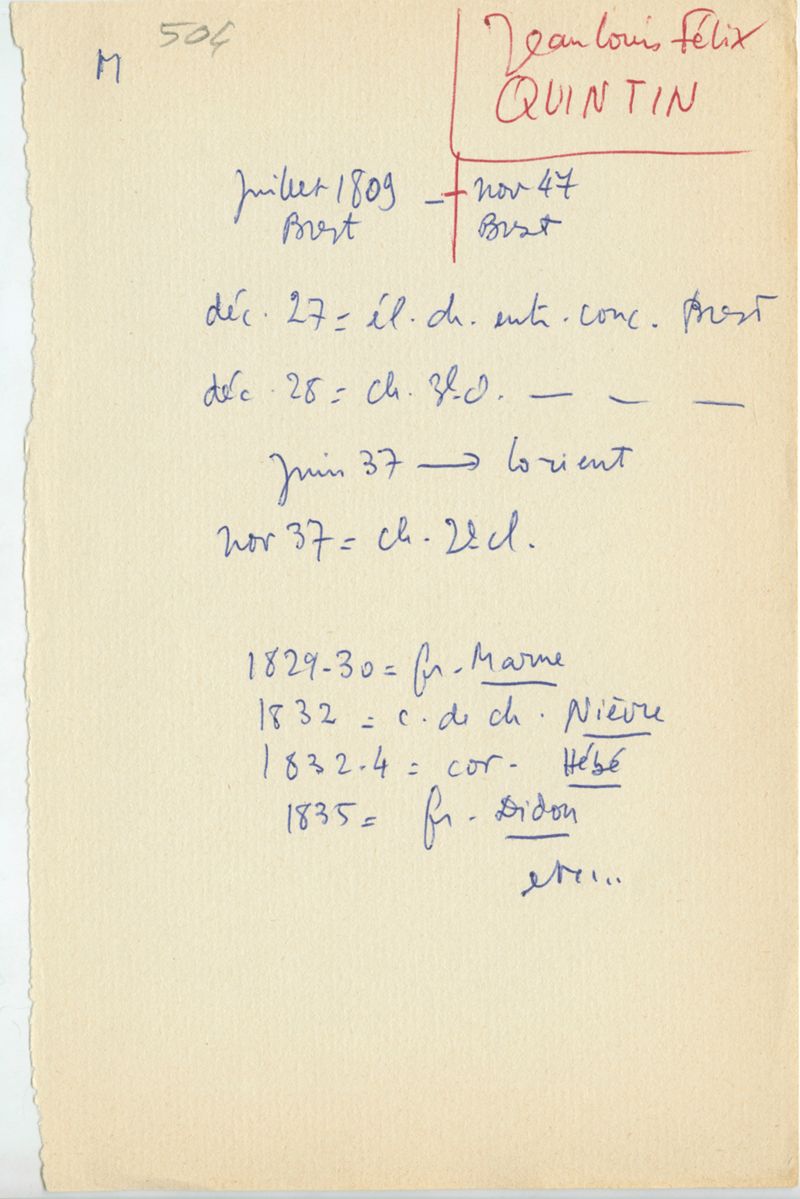 504
M
Jean Louis Félix
QUINTIN
Juillet 1809 – nov 47
Brest Brest
déc. 27 = él. ch. entr. conc. Brest
déc. 28 = ch. 3e cl. — — —
Juin 37 → Lorient
nov 37 = ch. 2e cl.
1829-30 = fr. Marne
1832 = c. de ch. Nièvre
1832-4 = cor. Hébé
1835 = fr. Didon
etc...